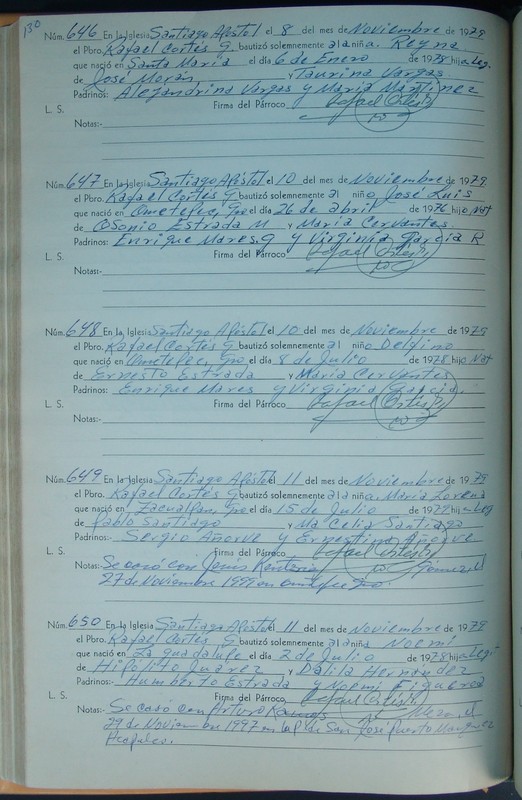 130
Núm. 646 En la Iglesia Santiago Apóstol el 8 del mes de Noviembre de 1979
el Pbro. Rafael Cortés G. bautizó solemnemente a la niña. Reyna
que nació en Santa María el día 6 de Enero de 1978 hija Leg.
de José Morán y Taurina Vargas
Padrinos: Alejandrina Vargas y María Martínez
L. S. Firma del Párroco Rafael Cortés G.
Notas:-
Núm. 647 En la Iglesia Santiago Apóstol el 10 del mes de Noviembre de 1979.
el Pbro. Rafael Cortés G bautizó solemnemente al niño José Luis
que nació en Ometepec, Gro el día 26 de abril de 1976 hijo Nat
de Osonio Estrada M y María Cervantes.
Padrinos: Enrique Mares. G y Virginia García R
L. S. Firma del Párroco Rafael Cortés G.
Notas:-
Núm. 648 En la Iglesia Santiago Apóstol el 10 del mes de Noviembre de 1979
el Pbro. Rafael Cortés G bautizó solemnemente al niño Delfino
que nació en Ometepec, Gro. el día 8 de Julio de 1978 hijo Nat
de Ernesto Estrada y María Cervantes
Padrinos: Enrique Mares y Virginia García.
L. S. Firma del Párroco Rafael Cortés G.
Notas:-
Núm. 649 En la Iglesia Santiago Apóstol el 11 del mes de Noviembre de 1979
el Pbro. Rafael Cortés G bautizó solemnemente a la niña. María Lorena
que nació en Zacualpan, Gro el día 15 de Julio de 1979 hija Leg
de Pablo Santiago y Ma Celia Santiago
Padrinos:- Sergio Añorve y Ernestina Añorve
L. S. Firma del Párroco Rafael Cortés G.
Notas: Se casó con Jesús Rentería Gómez el
27 de Noviembre 1999 en Ometepec Gro.
Núm. 650 En la Iglesia Santiago Apóstol el 11 del mes de Noviembre de 1979
el Pbro. Rafael Cortés G. bautizó solemnemente a la niña Noemí
que nació en La guadalupe el día 2 de Julio de 1978 hija Legit
de Hipólito Juárez y Dalila Hernández
Padrinos:- Humberto Estrada y Noemí Figueroa
L. S. Firma del Párroco Rafael Cortés G.
Notas:- Se casó con Arturo Ramos el
29 de Noviembre 1997 en la P. de San José Puerto Marquez
Acapulco.